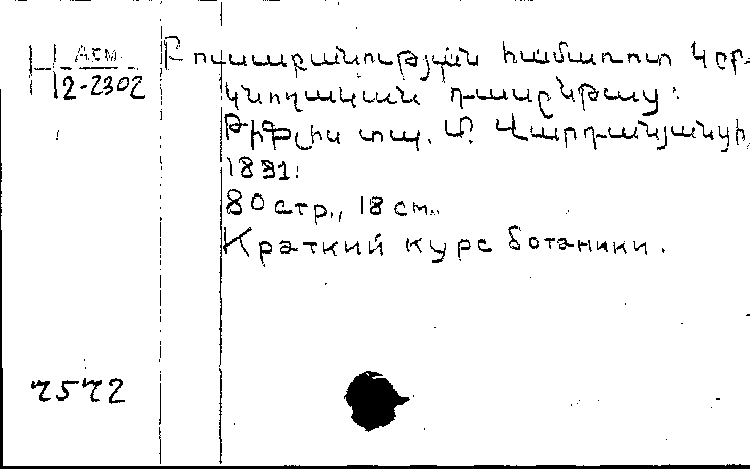 Н Асм.
2-2302
Բուսաբանութեան համառօտ կըր-
կնողական դասընթաց:
Թիֆլիս տպ. Մ. Վարդանյանցի,
1881:
80 стр., 18 см..
Краткий курс ботаники.
7572